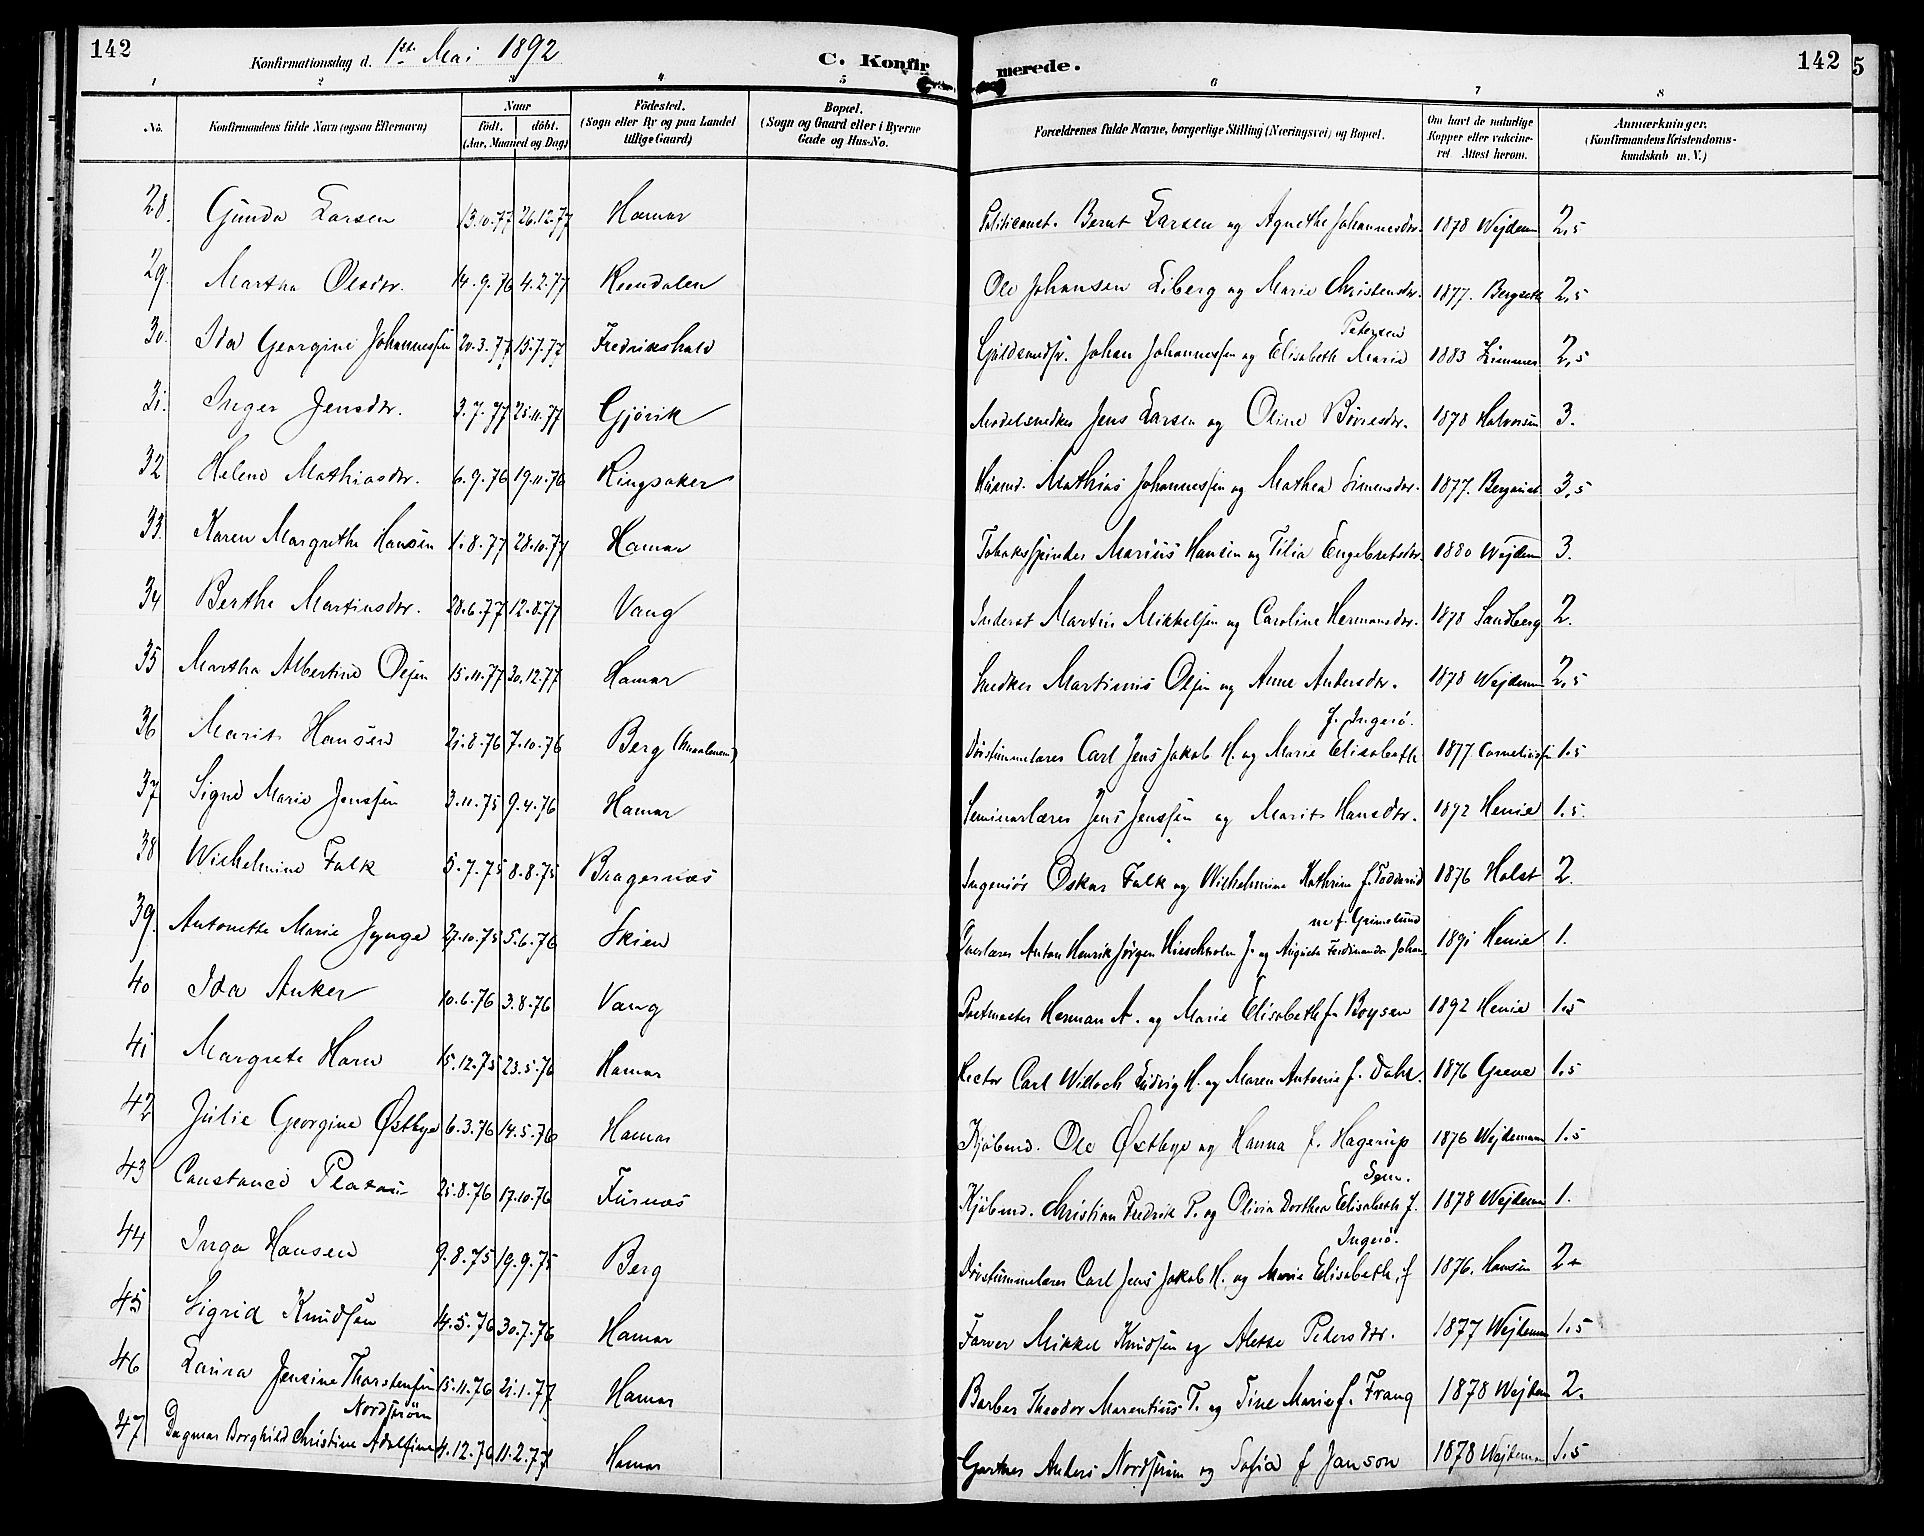 142
Konfirmationsdag d. 1ste Mai 1892
C. Konfirmerede.
142
5
1 2 3 4 5 6 7 8
No.
Konfirmandens fulde Navn (ogsaa Efternavn)
Naar
födt. döbt.
(Aar, Maaned og Dag)
Födested.
(Sogn eller By og paa Landet
tillige Gaard)
Bopæl.
(Sogn og Gaard eller i Byerne
Gade og Hus-No.
Forældrenes fulde Navne, borgerlige Stilling (Næringsvei) og Bopæl.
Om havt de naturlige
Kopper eller vakcine-
ret Attest herom.
Anmærkninger.
(Konfirmandens Kristendoms-
kundskab m. V.)
28. Gunda Larsen 13.10.77 26.12.77 Hamar Politiconst. Bernt Larsen og Agnethe Johannesdr. 1878 Wejdeman 2,5
29. Martha Olesdr. 14.9.76 4.2.77 Rendalen Ole Johansen Liberg og Marie Christensdr. 1877. Bergseth 2,5
30. Ida Georgine Johannessen 20.3.77 15.7.77 Fredrikshald Guldsmedsv. Johan Johannessen og Elisabeth Marie Petersen 1883 Zimmer 2,5
31. Inger Jensdr. 3.7.77 25.11.77 Gjövik Modelsnedker Jens Larsen og Oline Börresdr. 1878 Halvorsen 3.
32 Helene Mathiasdr. 6.9.76 19.11.76 Ringsaker Husmd. Mathias Johannessen og Mathea Simensdr. 1877. 3,5
33. Karen Margrethe Hansen 1.8.77 28.10.77 Hamar Tobaksspinder Marius Hansen og Tilia Engebretsdr. 1880 Wejdem 3.
34 Berthe Martinsdr. 28.6.77 12.8.77 Vang Inderst Martin Mikkelsen og Caroline Hermansdr. 1878 Sandberg 2.
35 Martha Albertine Olsen 15.11.77 30.12.77 Hamar Snedker Martinus Olsen og Anne Andersdr. 1878 Wejdeman 2,5
36 Marit Hansen 21.8.76 7.10.76 Berg Dövstummelærer Carl Jens Jakob H. og Marie Elisabeth f. Ingerö. 1877 Corneliussen 1.5
37 Signe Marie Jenssen 3.11.75 9.4.76 Hamar Seminarlærer Jens Jenssen og Marit Hansdr. 1892 Henie 1.5.
38 Wilhelmine Falk 5.7.75 8.8.75 Bragernæs Ingeniör Oskar Falk og Wilhelmine Kathrine f. Todderud 1876 Holst 2.
39. Antonette Marie Jynge 27.10.75 5.6.76 Skien Overlærer Anton Henrik Jörgen Hieschholm J. og Augusta Ferdinanda Johanne f. Grimelund 1891 Henie 1.
40 Ida Anker 10.6.76 3.8.76 Vang Postmester Herman A. og Marie Elisabeth f. Boysen 1892 Henie 1.5
41 Margrete Horn 15.12.75 23.5.76 Hamar Rector Carl Willoch Ludvig H. og Maren Antonie f. Dahl. 1876 Greve 1.5
42 Julie Georgine Østbye 6.3.76 14.5.76 Hamar Kjöbmd. Ole Østbye og Hanna f. Hagerup 1876 Wejdemann 1.5
43 Constance Platou 25.8.76 17.10.76 Furnæs Kjöbmd. Christian Fredrik P. og Olivia Dorthea Elisabeth f. Sem. 1878 Wejdeman 1.
44 Inga Hansen 9.8.75 19.9.75 Berg Dövstummelærer Carl Jens Jakob H. og Marie Elisabeth, f Ingerö. 1876. Hansen 2+
45 Sigrid Knudsen 14.5.76 30.7.76 Hamar Farver Mikkel Knudsen og Alette Petersdr. 1877 Wejdeman 1.5
46 Laura Jensine Thorstensen 15.11.76 21.1.77 Hamar Barber Theodor Marentius T. og Tine Marie f. Frang 1878 Wejdem 2.
47 Dagmar Borghild Christine Adolfine Nordström 4.12.76 11.2.77 Hamar Gartner Anders Nordström og Sofia f Janson 1878 Wejdeman 1.5